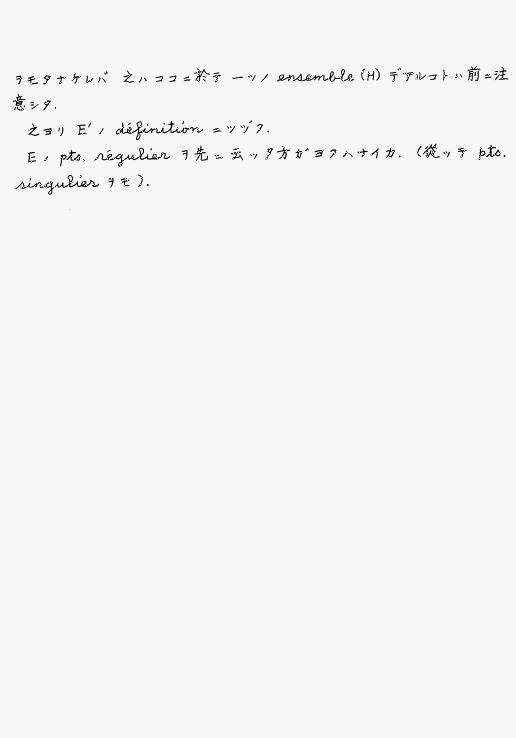 ヲモタナケレバ 之ハココニ於テ 一ツノ ensemble (H) デアルコトハ前ニ注
意シタ.
之ヨリ E' ノ définition ニツヅク.
E ノ pts. régulier ヲ先ニ云ッタ方ガヨクハナイカ. (從ッテ pts.
singulier ヲモ).